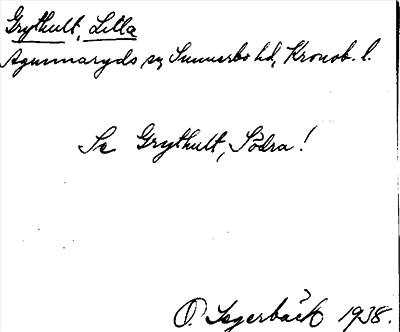 Grythult, Lilla
Agunnaryds sn Sunnerbo hd, Kronob. l.
Se Grythult, Södra!
P. Segerbäck 1938.